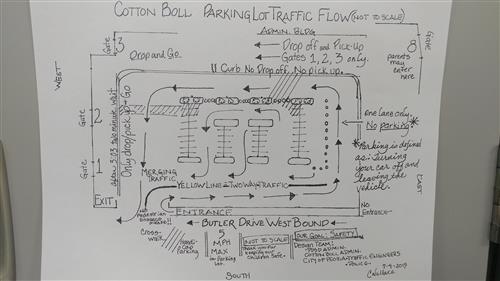 COTTON BOLL PARKING LOT TRAFFIC FLOW (NOT TO SCALE)
ADMIN. BLDG
Gate 3
Drop and Go
Drop off and Pick-Up
Gates 1, 2, 3 only.
Gate 8
parents may enter here
U Curb No Drop off, No pick up.
WEST
Gate 2
Gate 1
after 3:03 two minute wait
Only drop/pick up → Go
one lane only.
No parking
*Parking is defined
as: Turning
your car off and
leaving the
vehicle.
EAST
MERGING
TRAFFIC
YELLOW LINE = TWO WAY TRAFFIC
EXIT
ENTRANCE
No
Entrance
BUTLER DRIVE WEST BOUND
CROSS-
WALK
Parking
5
MPH
MAX
for Parking
Lot.
NOT TO SCALE
Thank you for
keeping our
children safe.
OUR GOAL: SAFETY
DESIGN TEAM:
PUSD ADMIN.
COTTON BOLL ADMIN.
CITY OF PEORIA TRAFFIC ENGINEERS
POLICE
SOUTH
C Wallace